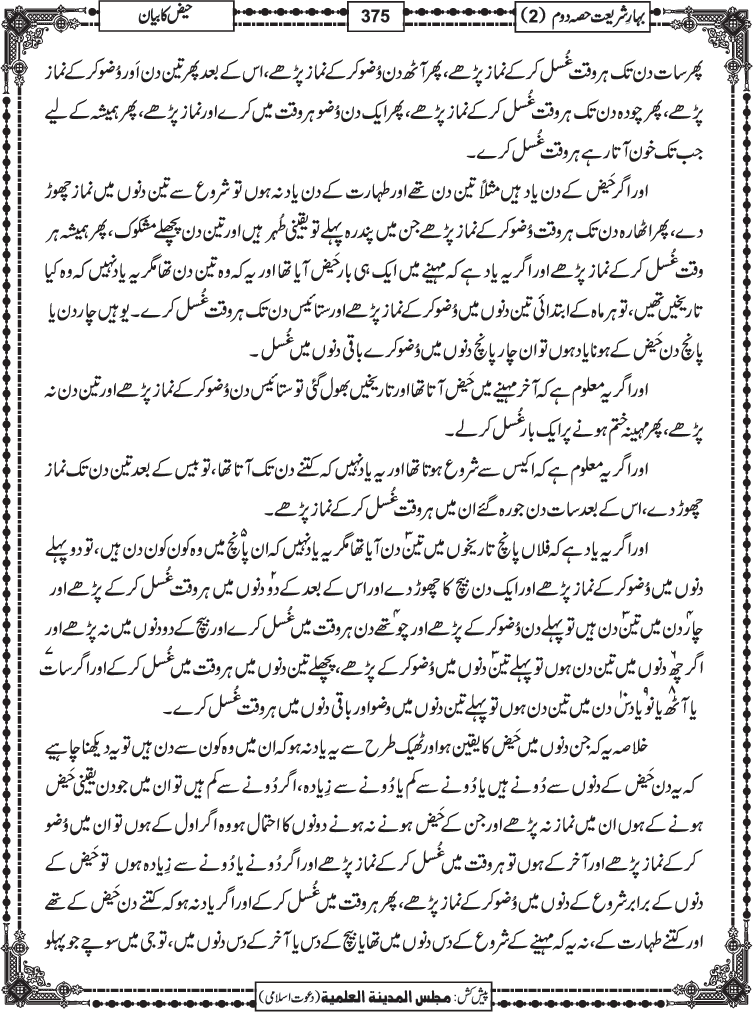 بہارِ شریعت حصہ دوم (2)
375
حیض کا بیان
پھر سات دن تک ہر وقت غُسل کر کے نماز پڑھے، پھر آٹھ دن وُضو کر کے نماز پڑھے، اس کے بعد پھر تین دن اَور وُضو کر کے نماز
پڑھے، پھر چودہ دن تک ہر وقت غُسل کر کے نماز پڑھے، پھر ایک دن وُضو ہر وقت میں کرے اور نماز پڑھے، پھر ہمیشہ کے لیے
جب تک خون آتا رہے ہر وقت غُسل کرے۔
اور اگر حَیض کے دن یاد ہیں مثلاً تین دن تھے اور طہارت کے دن یاد نہ ہوں تو شروع سے تین دنوں میں نماز چھوڑ
دے، پھر اٹھارہ دن تک ہر وقت وُضو کر کے نماز پڑھے جن میں پندرہ پہلے تو یقینی طُہر ہیں اور تین دن پچھلے مشکوک، پھر ہمیشہ ہر
وقت غُسل کر کے نماز پڑھے اور اگر یہ یاد ہے کہ مہینے میں ایک ہی بار حَیض آیا تھا اور یہ کہ وہ تین دن تھا مگر یہ یاد نہیں کہ وہ کیا
تاریخیں تھیں، تو ہر ماہ کے ابتدائی تین دنوں میں وُضو کر کے نماز پڑھے اور ستائیس دن تک ہر وقت غُسل کرے۔ یوہیں چار دن یا
پانچ دن حَیض کے ہونا یاد ہوں تو ان چار پانچ دنوں میں وُضو کرے باقی دنوں میں غُسل ۔
اور اگر یہ معلوم ہے کہ آخر مہینے میں حَیض آتا تھا اور تاریخیں بھول گئی تو ستائیس دن وُضو کر کے نماز پڑھے اور تین دن نہ
پڑھے، پھر مہینہ ختم ہونے پر ایک بار غُسل کر لے۔
اور اگر یہ معلوم ہے کہ اکیس سے شروع ہوتا تھا اور یہ یاد نہیں کہ کتنے دن تک آتا تھا، تو بیس کے بعد تین دن تک نماز
چھوڑ دے، اس کے بعد سات دن جو رہ گئے ان میں ہر وقت غُسل کر کے نماز پڑھے۔
اور اگر یہ یاد ہے کہ فلاں پانچ تاریخوں میں تین۳ دن آیا تھا مگر یہ یاد نہیں کہ ان پانچ۵ میں وہ کون کون دن ہیں، تو دو پہلے
دنوں میں وُضو کر کے نماز پڑھے اور ایک دن بیچ کا چھوڑ دے اور اس کے بعد کے دو۲ دنوں میں ہر وقت غُسل کر کے پڑھے اور
چار۴ دن میں تین۳ دن ہیں تو پہلے دن وُضو کر کے پڑھے اور چوتھے۴ دن ہر وقت میں غُسل کرے اور بیچ کے دو دنوں میں نہ پڑھے اور
اگر چھ۶ دنوں میں تین دن ہوں تو پہلے تین۳ دنوں میں وُضو کر کے پڑھے، پچھلے تین دنوں میں ہر وقت میں غُسل کر کے اور اگر سات۷
یا آٹھ۸ یا نو۹ یا دس۱۰ دن میں تین دن ہوں تو پہلے تین دنوں میں وضو اور باقی دنوں میں ہر وقت غُسل کرے۔
خلاصہ یہ کہ جن دنوں میں حَیض کا یقین ہو اور ٹھیک طرح سے یہ یاد نہ ہو کہ ان میں وہ کون سے دن ہیں تو یہ دیکھنا چاہیے
کہ یہ دن حَیض کے دنوں سے دُونے ہیں یا دُونے سے کم یا دُونے سے زِیادہ، اگر دُونے سے کم ہیں تو ان میں جو دن یقینی حَیض
ہونے کے ہوں ان میں نماز نہ پڑھے اور جن کے حَیض ہونے نہ ہونے دونوں کا احتمال ہو وہ اگر اول کے ہوں تو ان میں وُضو
کر کے نماز پڑھے اور آخر کے ہوں تو ہر وقت میں غُسل کر کے نماز پڑھے اور اگر دُونے یا دُونے سے زِیادہ ہوں تو حَیض کے
دنوں کے برابر شروع کے دنوں میں وُضو کر کے نماز پڑھے، پھر ہر وقت میں غُسل کر کے اور اگر یاد نہ ہو کہ کتنے دن حَیض کے تھے
اور کتنے طہارت کے، نہ یہ کہ مہینے کے شروع کے دس دنوں میں تھا یا بیچ کے دس یا آخر کے دس دنوں میں، تو جی میں سوچے جو پہلو
پیش کش: مجلس المدینة العلمیة (دعوتِ اسلامی)